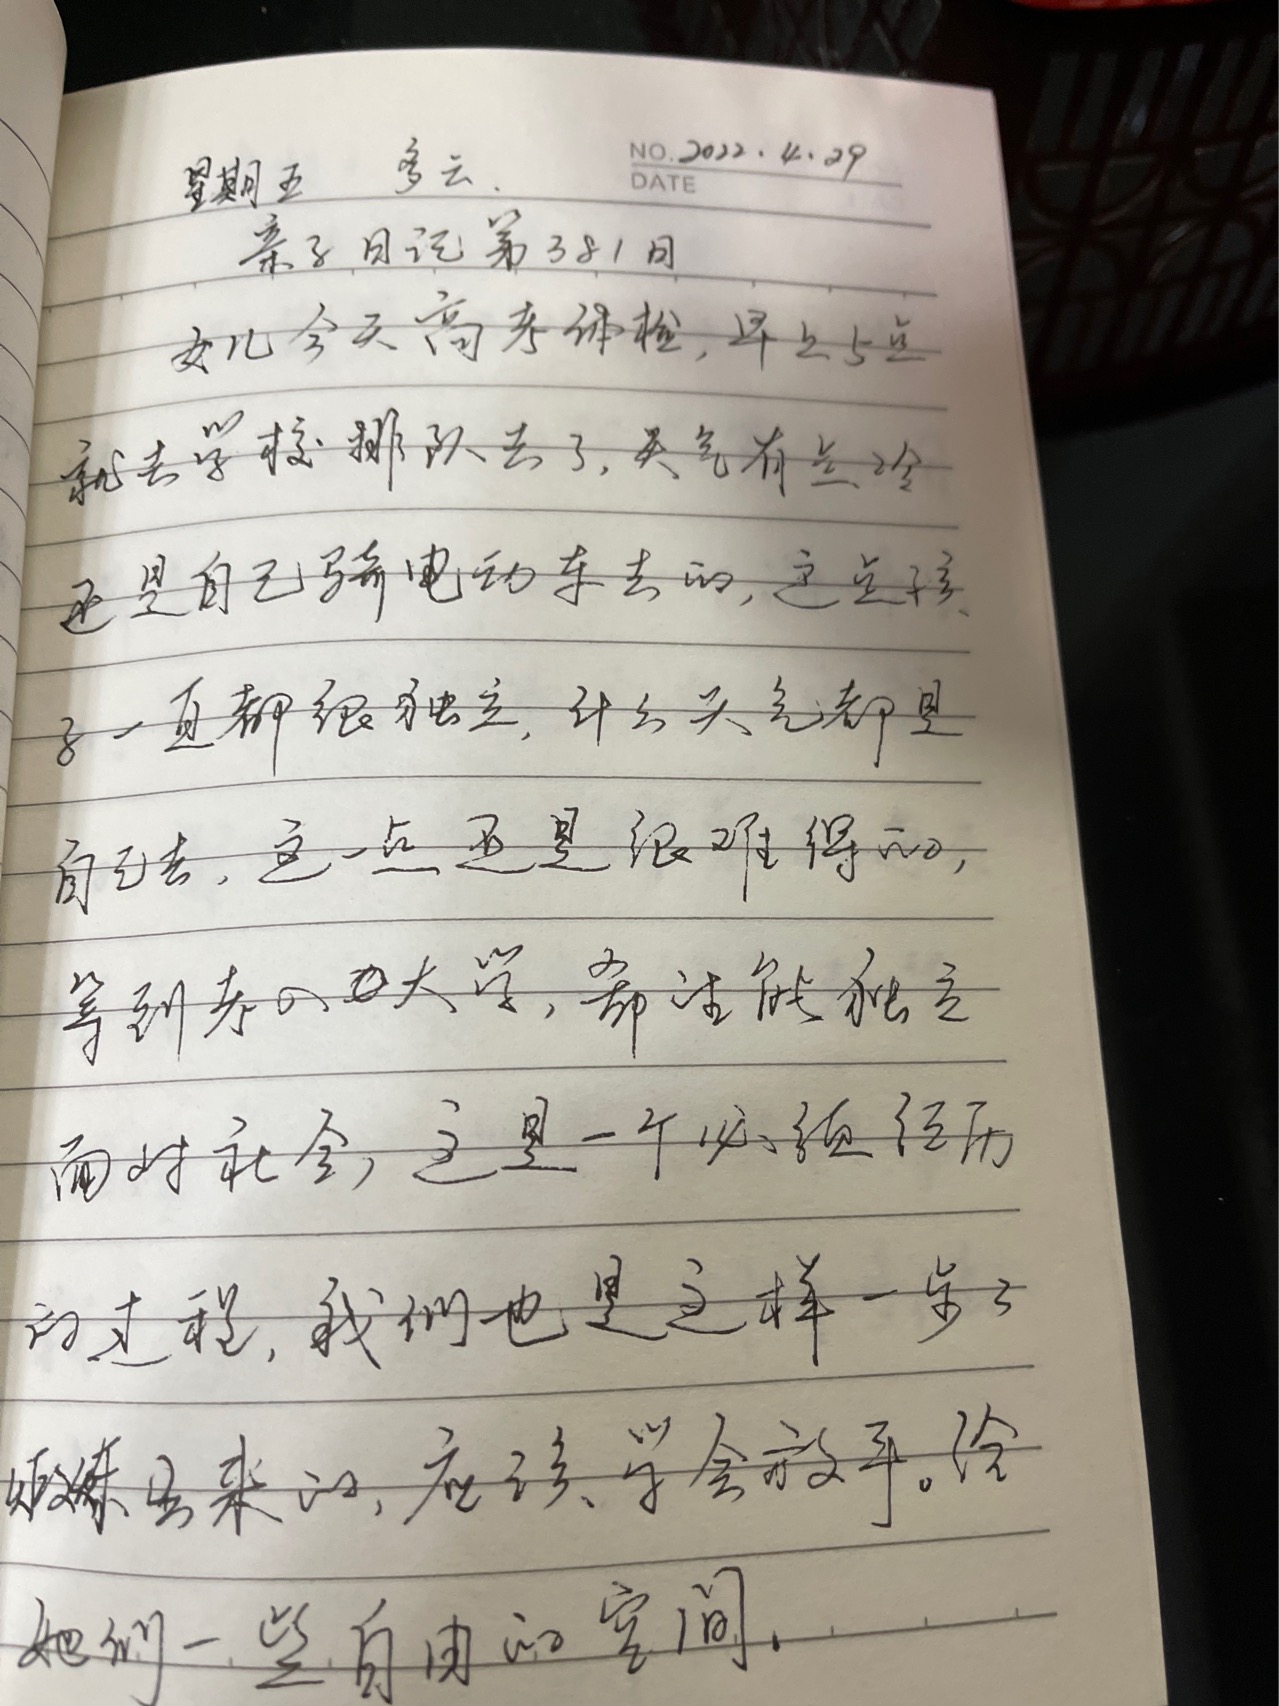 NO. 2022.4.29
星期五 多云.
DATE
亲子日记第381日
女儿今天高考体检,早上5点
就去学校排队去了,天气有点冷
还是自己骑电动车去的,这点孩
子一直都很独立,什么天气都是
自己去,这一点还是很难得的,
等到考入大学,都油能独立
面对社会,这是一个必须经历
的过程,我们也是这样一步了
锻炼出来的,应该学会放手。给
她们一些自由的空间.